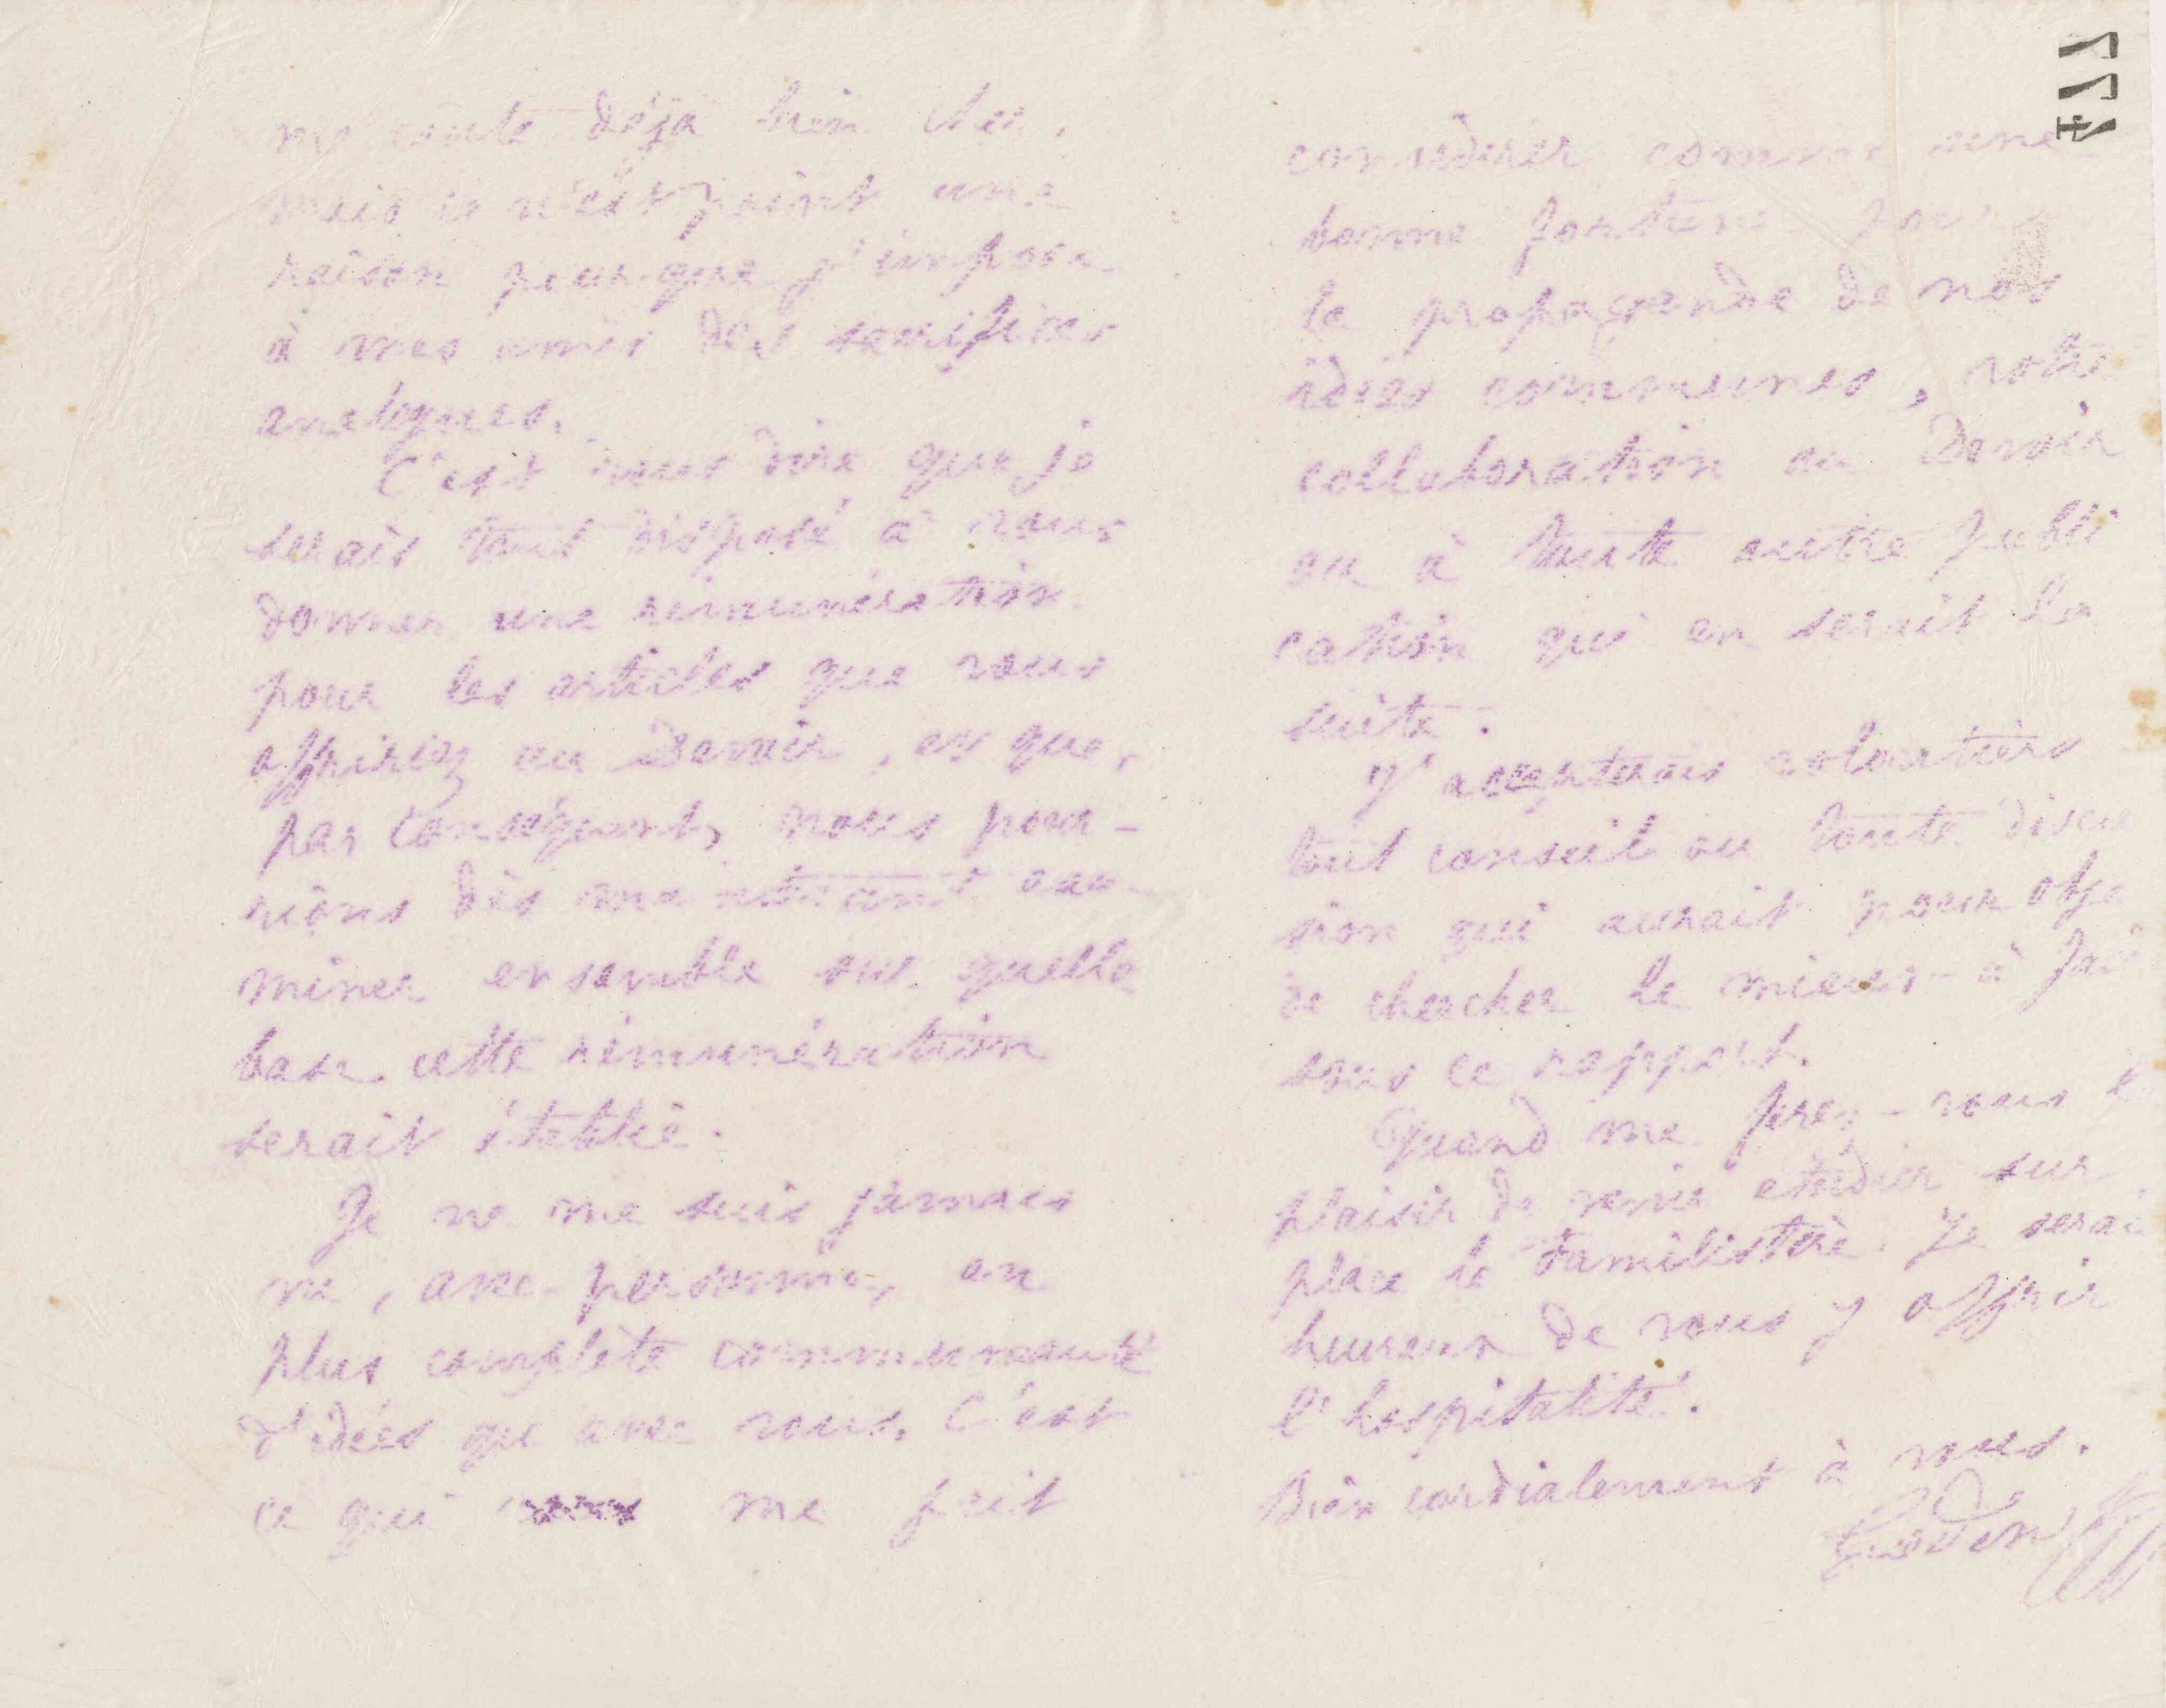 me coûte déjà bien cher,
mais ce n'est point une
raison pour que j'impose
à mes amis des sacrifices
analogues.
C'est vous dire que je
serais tout disposé à vous
donner une rémunération
pour les articles que vous
offririez au Devoir, et que,
par conséquent, nous pour-
rions dès maintenant exa-
miner ensemble sur quelle
base cette rémunération
serait établie.
Je ne me suis jamais
vu, avec personne, en
plus complète communauté
d'idées qu'avec vous. C'est
ce qui me fait
considérer comme une
bonne fortune pour
la propagande de nos
idées communes, votre
collaboration au Devoir
ou à toute autre publi
cation qui en serait la
suite.
J'accepterais volontiers
tout conseil ou toute discu
sion qui aurait pour obje
de chercher le mieux à fai
sous ce rapport.
Quand me ferez-vous le
plaisir de venir étudier sur
place le Familistère. Je serai
heureux de vous y offrir
l'hospitalité.
Bien cordialement à vous.
Godin
722